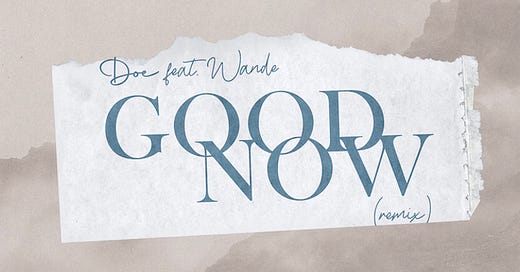 Doe feat. Wande
GOOD
NOW
(remix)